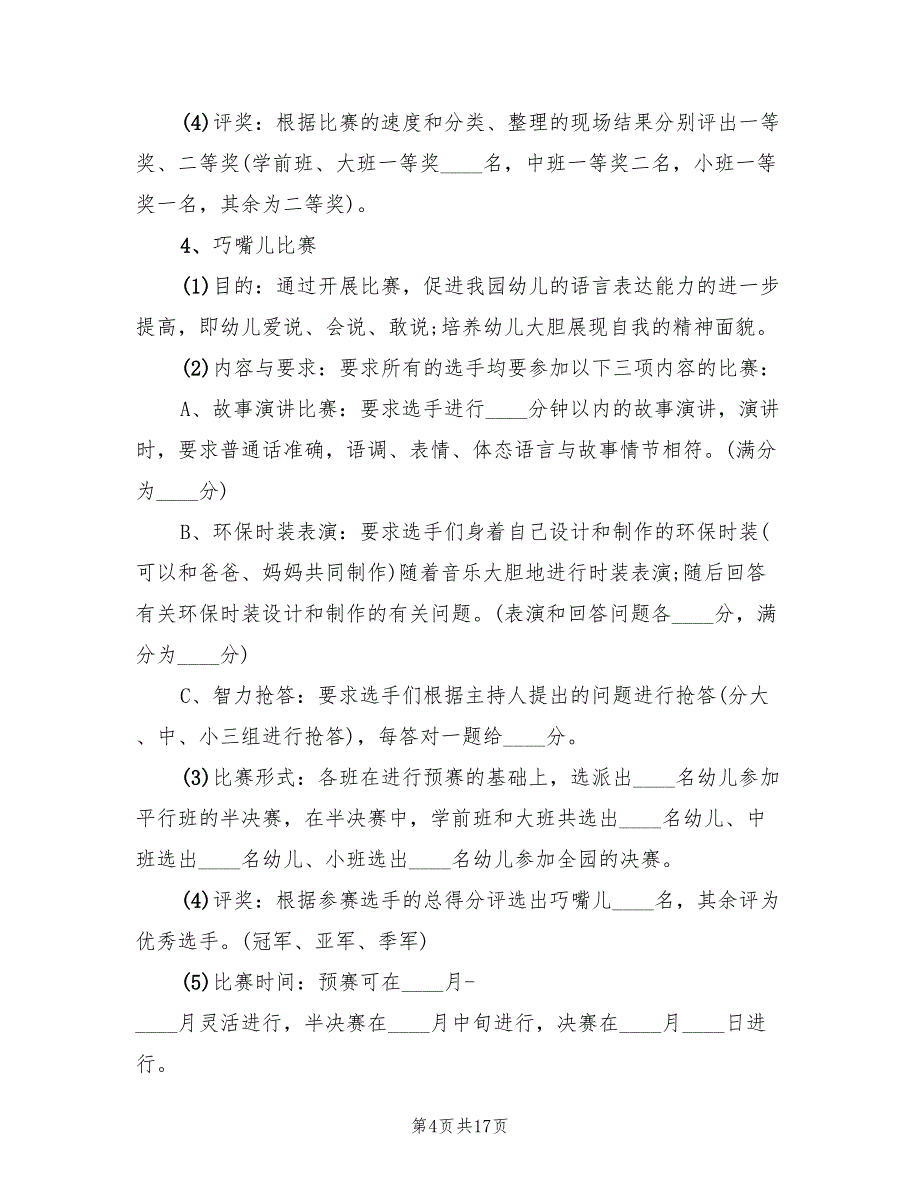 (4)评奖：根据比赛的速度和分类、整理的现场结果分别评出一等
奖、二等奖(学前班、大班一等奖____名，中班一等奖二名，小班一等
奖一名，其余为二等奖)。
4、巧嘴儿比赛
(1)目的：通过开展比赛，促进我园幼儿的语言表达能力的进一步
提高，即幼儿爱说、会说、敢说;培养幼儿大胆展现自我的精神面貌。
(2)内容与要求：要求所有的选手均要参加以下三项内容的比赛：
A、故事演讲比赛：要求选手进行____分钟以内的故事演讲，演讲
时，要求普通话准确，语调、表情、体态语言与故事情节相符。(满分
为____分)
B、环保时装表演：要求选手们身着自己设计和制作的环保时装(
可以和爸爸、妈妈共同制作)随着音乐大胆地进行时装表演;随后回答
有关环保时装设计和制作的有关问题。(表演和回答问题各____分，满
分为____分)
C、智力抢答：要求选手们根据主持人提出的问题进行抢答(分大
、中、小三组进行抢答)，每答对一题给____分。
(3)比赛形式：各班在进行预赛的基础上，选派出____名幼儿参加
平行班的半决赛，在半决赛中，学前班和大班共选出____名幼儿、中
班选出____名幼儿、小班选出____名幼儿参加全园的决赛。
(4)评奖：根据参赛选手的总得分评选出巧嘴儿____名，其余评为
优秀选手。(冠军、亚军、季军)
(5)比赛时间：预赛可在____月-
____月灵活进行，半决赛在____月中旬进行，决赛在____月____日进
行。
第4页共17页